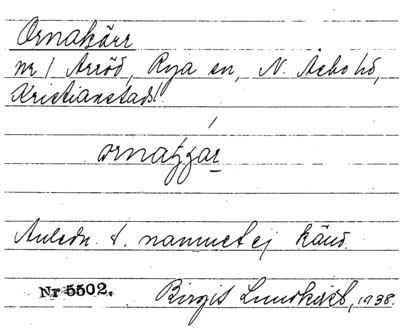 Ornakärr
nr 1 Arröd, Rya sn, N. Åsbo hd,
Kristianstads
Anledn. t. namnet ej känd.
Nr 5502. Birgit Lundkvist, 1938.